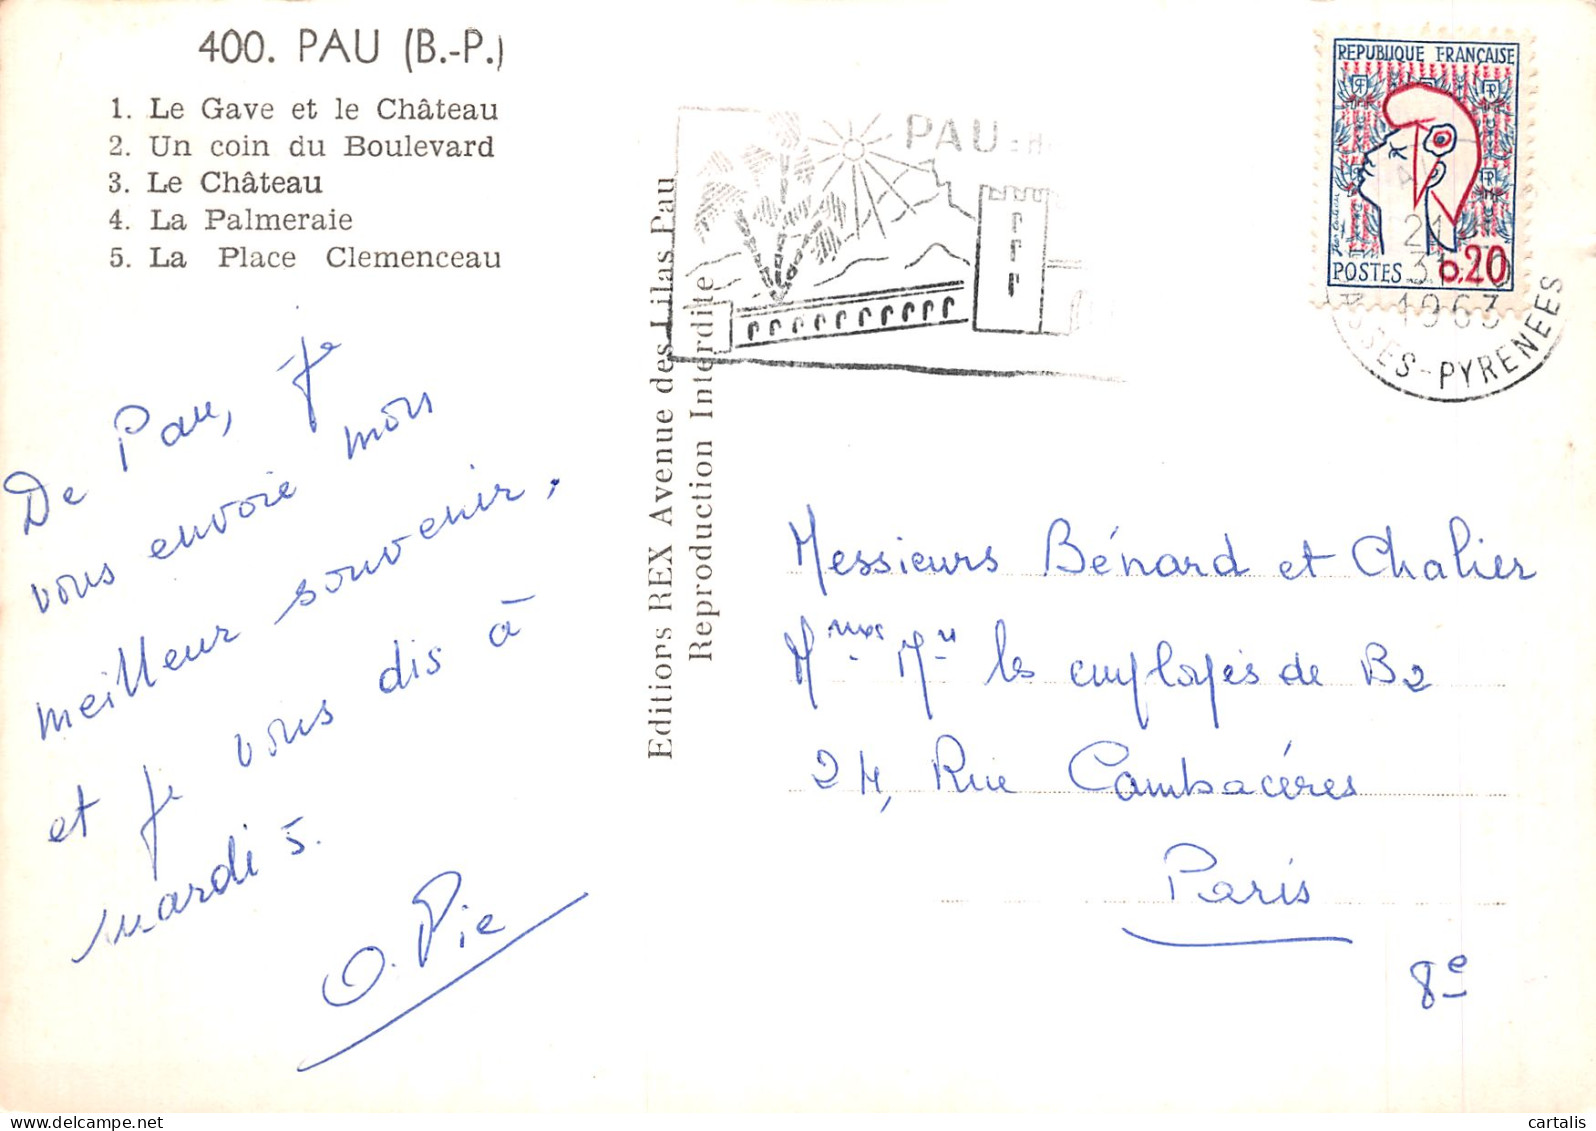 400. PAU (B.-P.)
1. Le Gave et le Château
2. Un coin du Boulevard
3. Le Château
4. La Palmeraie
5. La Place Clemenceau
De Pau, je
vous envoie mon
meilleur souvenir,
et je vous dis à
mardi 5.
O. Pie
Editions REX Avenue des Lilas Pau
Reproduction Interdite
PAU :
REPUBLIQUE FRANÇAISE
POSTES 0,20
21
31
1963
SSES-PYRENEES
Messieurs Bénard et Chalier
Mmes Mrs les employés de B2
24, Rue Cambacérès
Paris
8e
cartalis